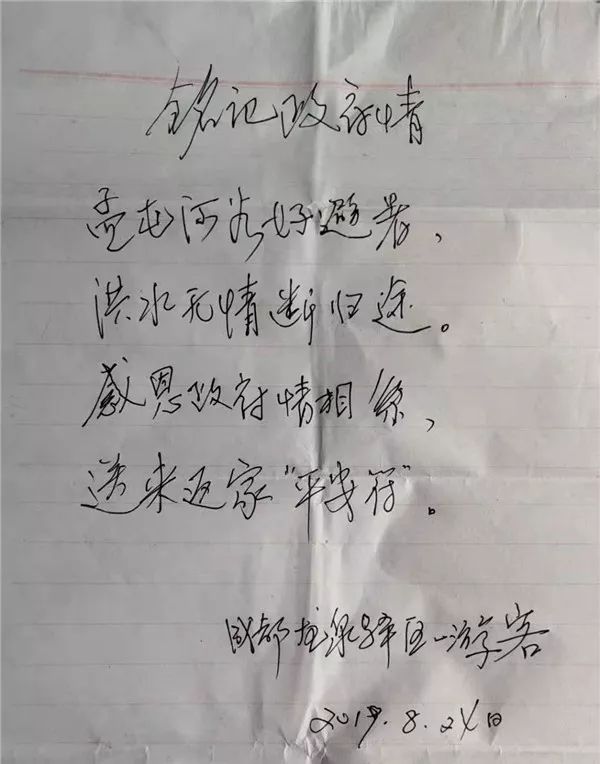 铭记政府情
孟屯河谷好避暑，
洪水无情断归途。
感恩政府情相系，
送来返家“平安符”。
成都龙泉驿区一游客
2019.8.24日